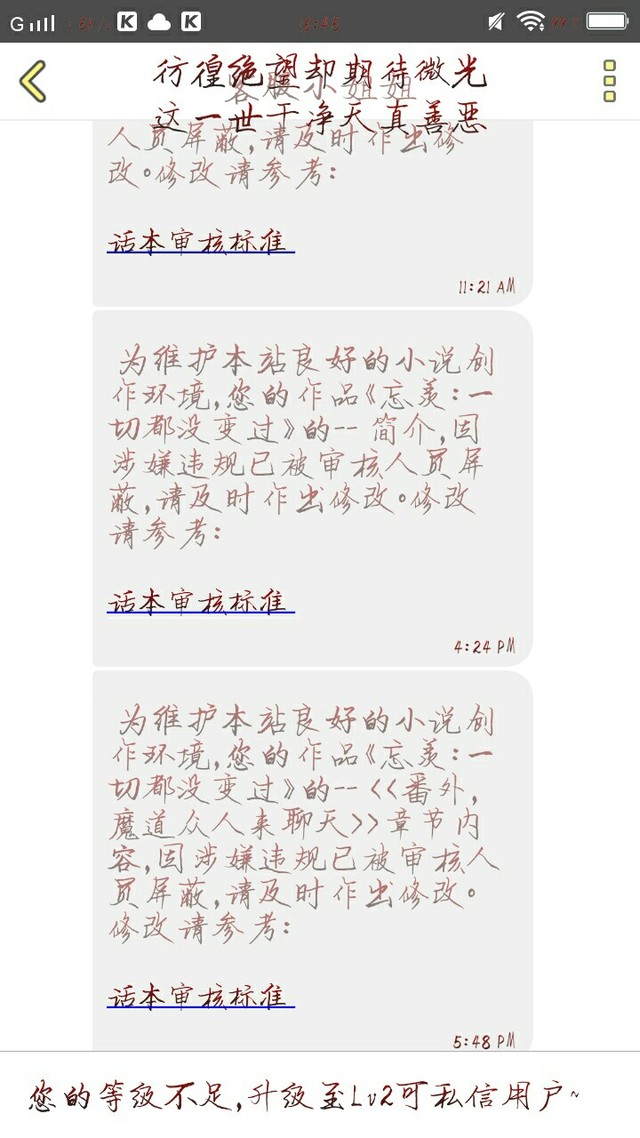 彷徨绝望却期待微光
客服小姐姐
这一世干净天真善恶
人员屏蔽,请及时作出修
改。修改请参考:
话本审核标准
11:21 AM
为维护本站良好的小说创
作环境,您的作品《忘羡:一
切都没变过》的--简介,因
涉嫌违规已被审核人员屏
蔽,请及时作出修改。修改
请参考:
话本审核标准
4:24 PM
为维护本站良好的小说创
作环境,您的作品《忘羡:一
切都没变过》的--<<番外,
魔道众人来聊天>>章节内
容,因涉嫌违规已被审核人
员屏蔽,请及时作出修改。
修改请参考:
话本审核标准
5:48 PM
您的等级不足,升级至Lv2可私信用户~